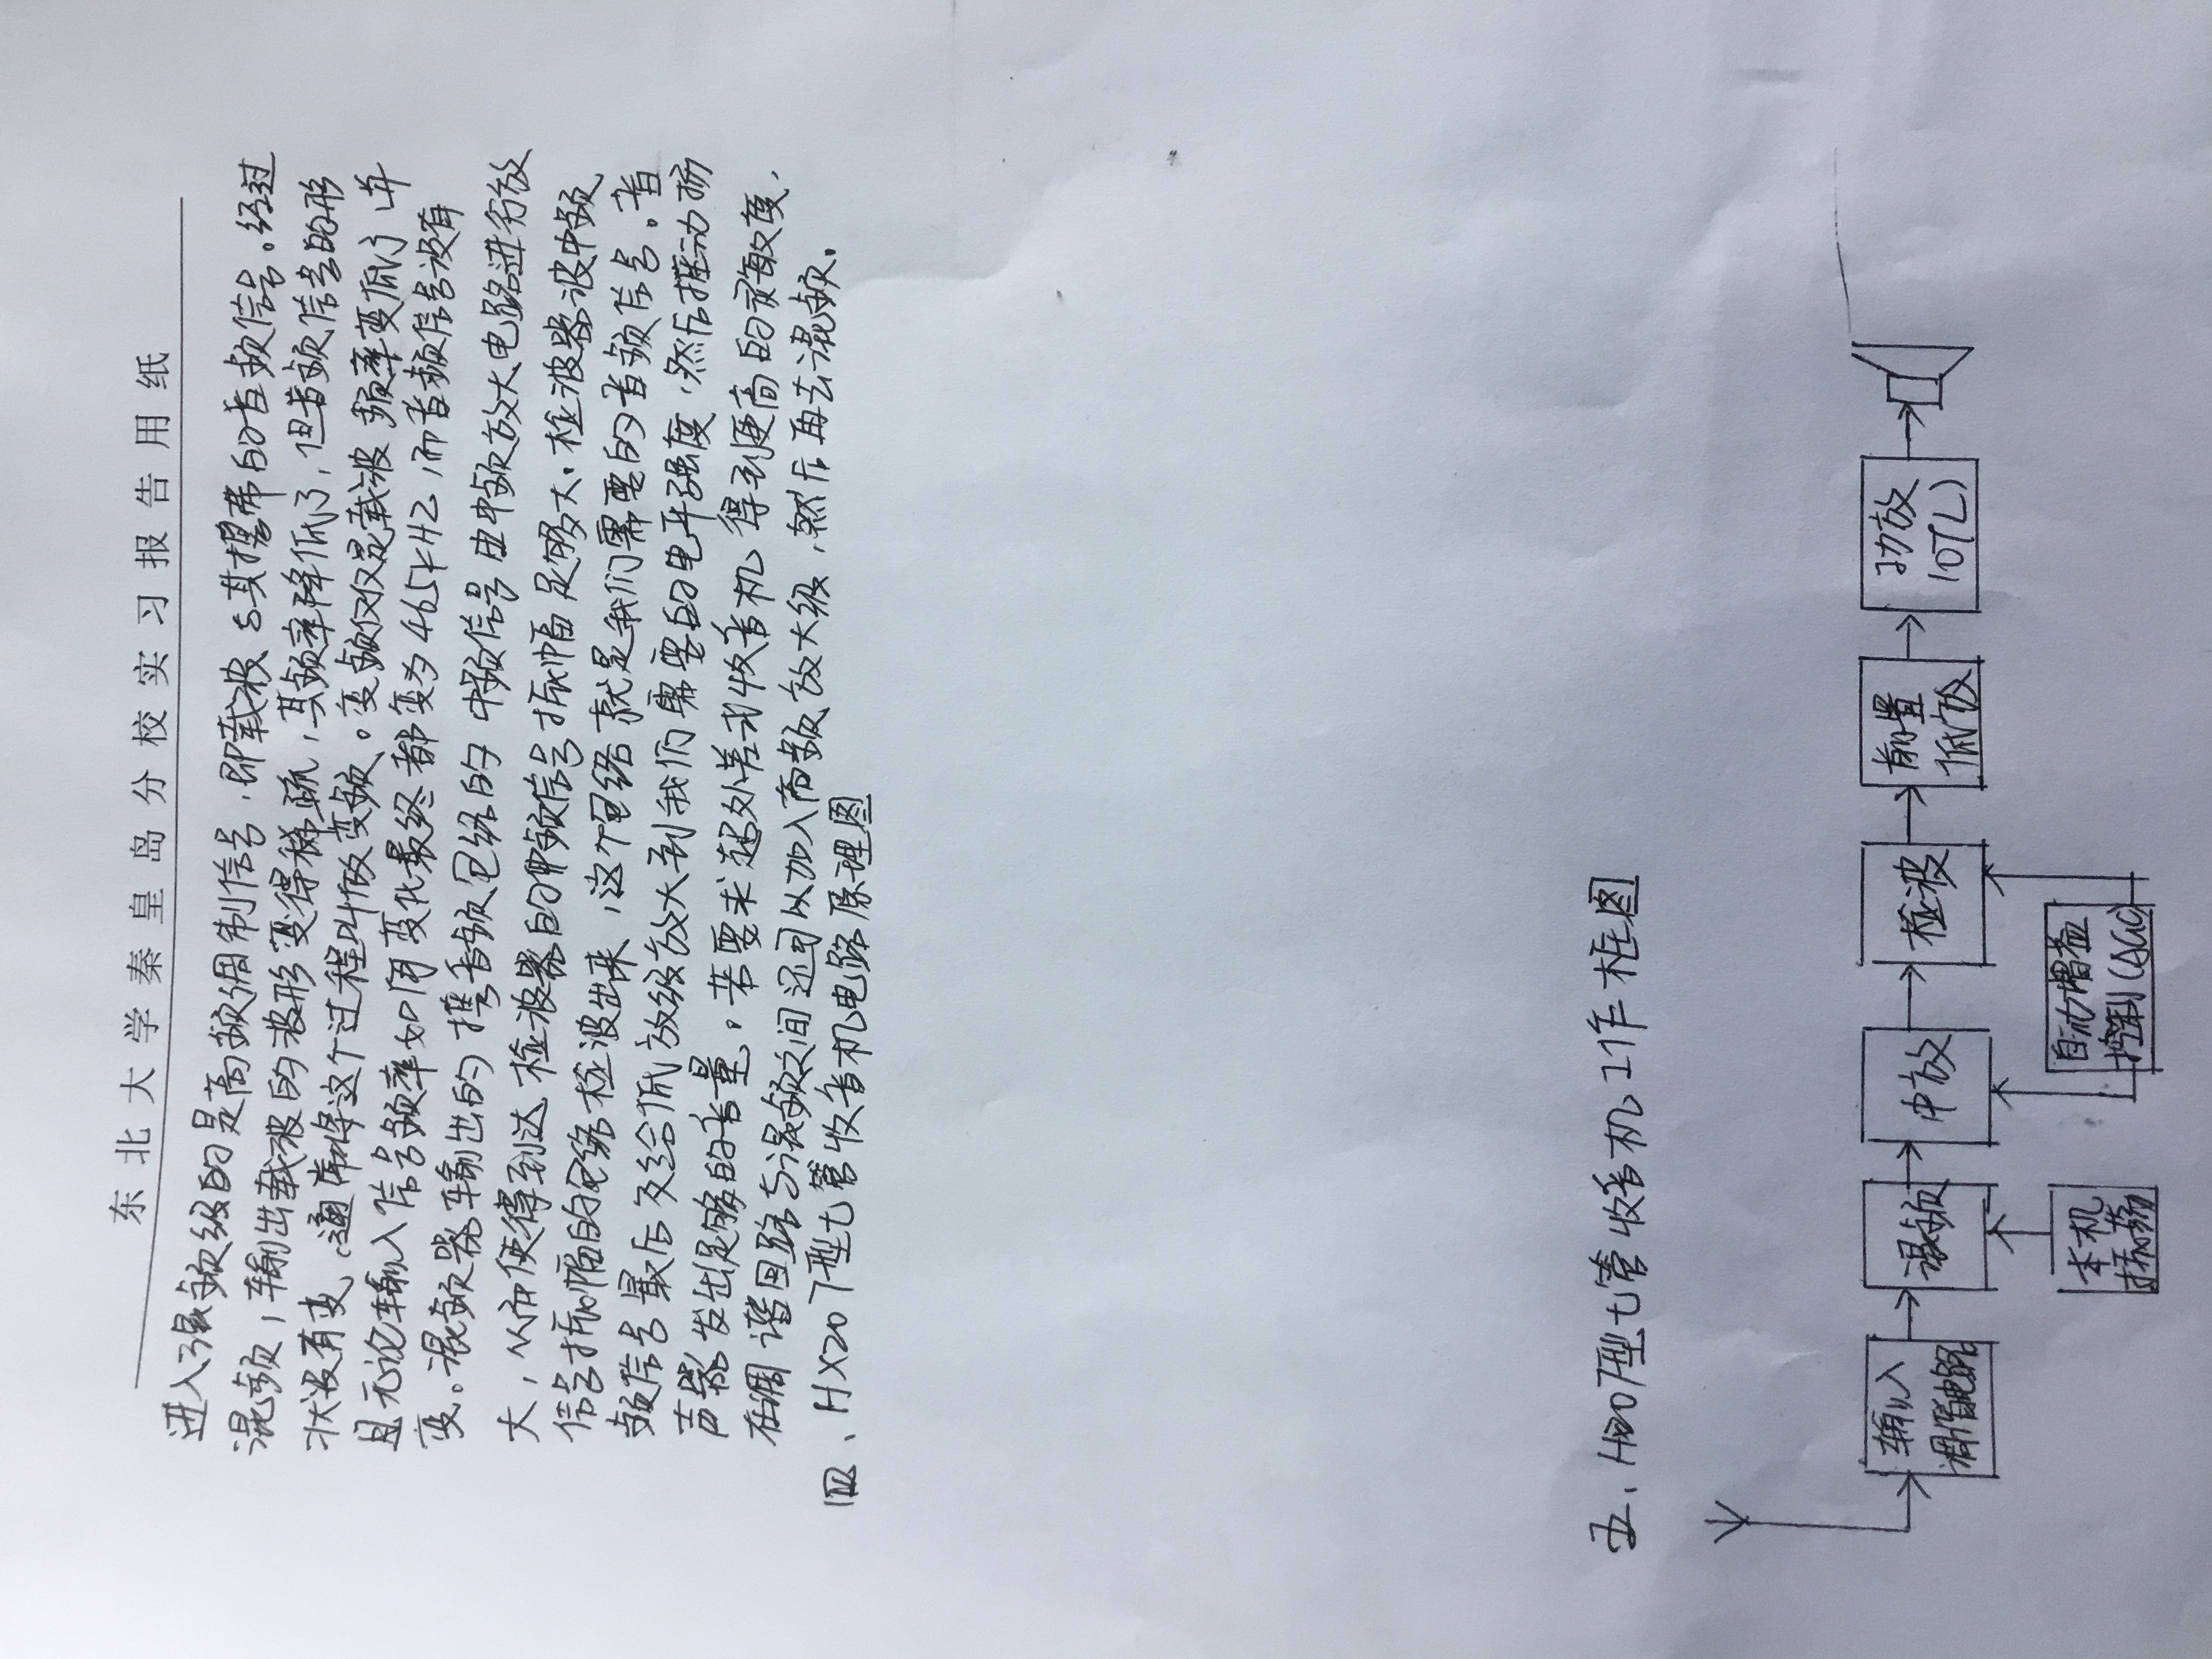 东北大学秦皇岛分校实习报告用纸
进入混频级的是高频调制信号，即载波与其携带的音频信号。经过
混频，输出载波的波形变得稀疏，其频率降低了，但音频信号的形
状没有变，通常将这个过程叫做变频。变频仅仅是载波频率变低了，并
且无论输入信号频率如何变化最终都变为465KHZ，而音频信号没有
变。混频器输出的携音频包络的中频信号由中频放大电路进行放
大，从而使得到达检波器的中频信号振幅足够大。检波器波中频
信号振幅的包络检波出来，这个包络就是我们需要的音频信号。音
频信号最后交给低放级放大到我们需要的电平强度，然后推动扬
声器发出足够的音量。若要求超外差式收音机得到更高的灵敏度，
在调谐回路与混频之间还可以加入高频放大级，然后再去混频。
四、HX207型七管收音机电路原理图
五、H207型七管收音机工作框图
输入
调谐电路
混频
中放
检波
前置
低放
功放
(OTL)
本机
振荡
自动增益
控制(AGC)